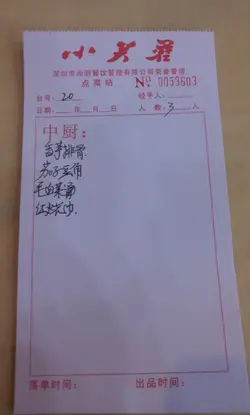 小芙蓉
深圳市尚厨餐饮管理有限公司荣誉管理
点菜站 No 0053603
台号：20 经手人：
日期：年 月 日 人数：3人
中厨：
香芋排骨
茄子豆角
毛血菜
红烧
落单时间： 出品时间：